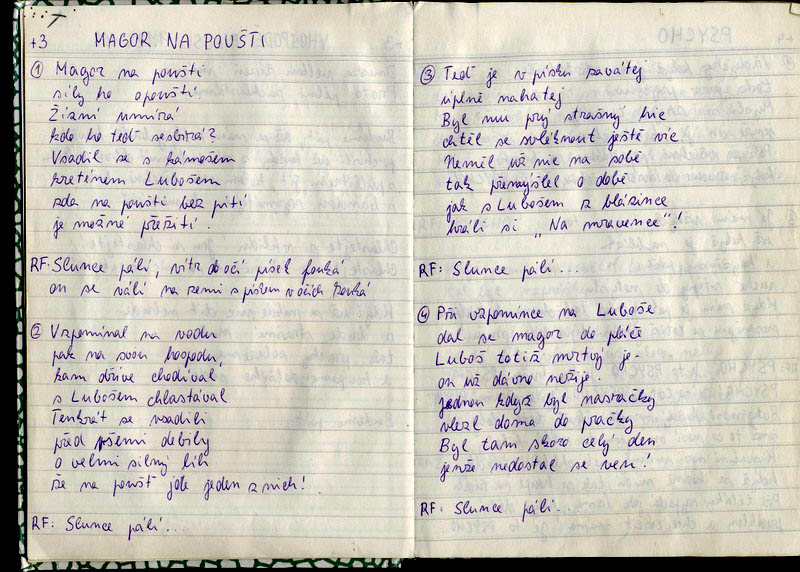 +3 MAGOR NA POUŠTI
① Magor na poušti
síly ho opouští.
Žízní umírá
kdo ho teď sesbírá?
Vsadil se s kámošem
kreténem Lubošem
zda na poušti bez pití
je možné přežití.
RF: Slunce pálí, vítr do očí písek fouká
on se válí na zemi s pískem v očích kouká
② Vzpomínal na vodu
pak na svou hospodu,
kam dříve chodíval
s Lubošem chlastával
Tenkrát se vsadili
před všemi debily
o velmi silný líh
že na poušť jde jeden z nich!
RF: Slunce pálí...
③ Teď je v písku zavátej
úplně nahatej
Byl mu prý strašný hic
chtěl se svléknout ještě víc.
Neměl už nic na sobě
tak přemýšlel o době
jak s Lubošem z blázince
hráli si „Na mravence"!
RF: Slunce pálí...
④ Při vzpomínce na Luboše
dal se magor do pláče
Luboš totiž mrtvý je -
on už dávno nežije.
Jednou když byl nasračky
vlezl doma do pračky
Byl tam skoro celý den
jenže nedostal se ven!
RF: Slunce pálí...